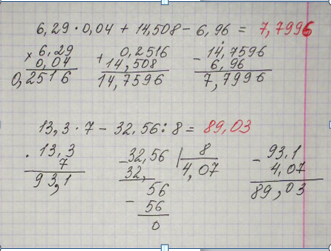 6,29 · 0,04 + 14,508 - 6,96 = 7,7996
× 6,29 + 0,2516 - 14,7596
0,04 14,508 6,96
0,2516 14,7596 7,7996
13,3 · 7 - 32,56 : 8 = 89,03
· 13,3 - 32,56 | 8 - 93,1
7 32, 4,07 4,07
93,1 56 89,03
- 56
0